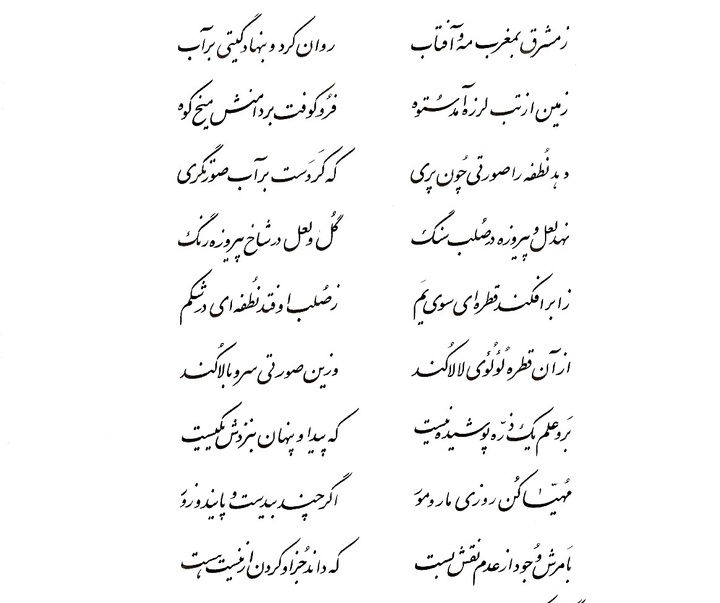 ز مشرق بمغرب مه و آفتاب روان کرد و بنهاد گیتی بر آب
زمین از تب لرزه آمد ستوه فرو کوفت بر دامنش میخ کوه
دهد نُطفه را صورتی چون پری که کَردَست بر آب صورتگری
نهد لعل و پیروزه در صُلب سنگ گُل و لعل در شاخ پیروزه رنگ
ز ابر افکند قطره‌ای سوی یَم ز صُلب اوفتد نُطفه‌ای در شکم
از آن قطره لُؤلُؤی لالا کُند وزین صورتی سرو بالا کُند
بَرو علم یک ذرّه پوشیده نیست که پیدا و پنهان بنزدش یکیست
مُهیّا کُن روزی مار و مور اگر چند بیدست و پایند و زور
بامرش وُجود از عدم نقش بست که داند جُز او کردن از نیست هست